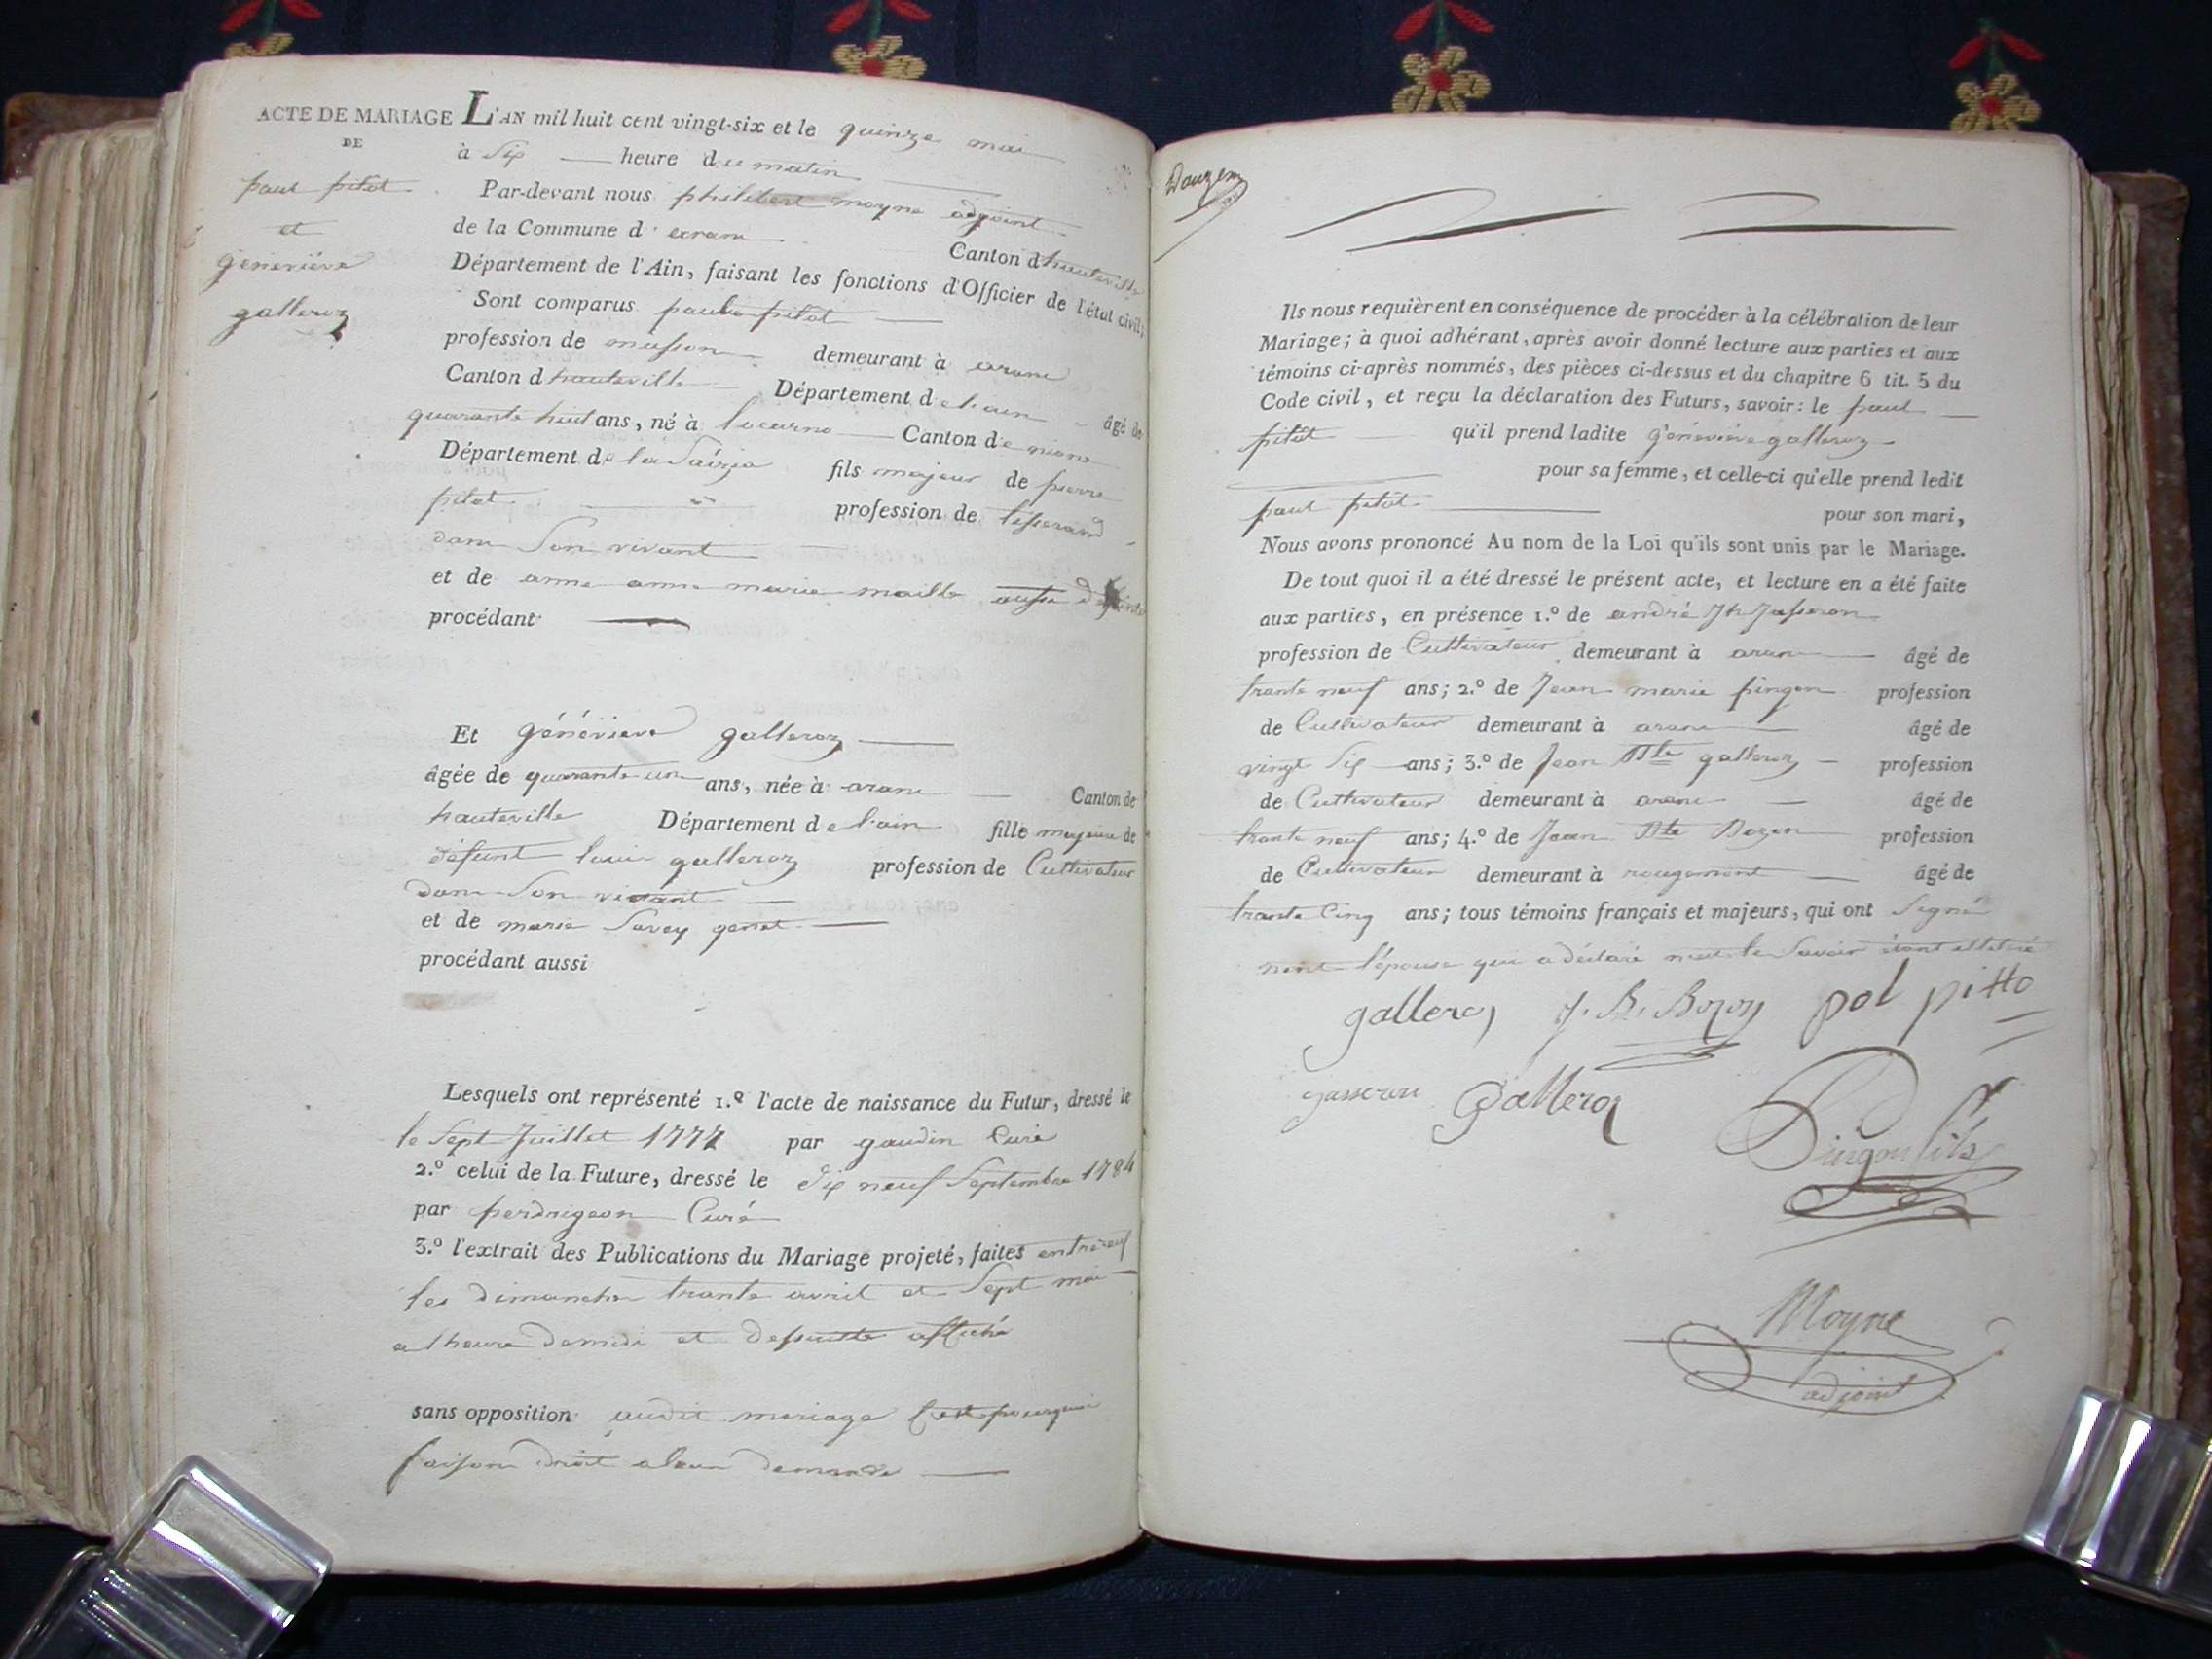 ACTE DE MARIAGE
DE
paul pitot
et
géneviève
galleroz
L'AN mil huit cent vingt-six et le quinze mai
à Six heure du matin
Par-devant nous philibert moyne adjoint
de la Commune d'arranc Canton d'hauteville
Département de l'Ain, faisant les fonctions d'Officier de l'état civil;
Sont comparus paul pitot
profession de masson demeurant à aranc
Canton d'hauteville Département de l'ain âgé de
quarante huit ans, né à locarno Canton de
Département de la fils majeur de pierre
pitot profession de tisserand
dans Son vivant
et de anne marie maille aussi
procédant
Et généviève galleroz
âgée de quarante un ans, née à aranc Canton de
hauteville Département de l'ain fille majeure de
défunt louis galleroz profession de Cultivateur
dans Son vivant
et de marie Savey genet
procédant aussi
Lesquels ont représenté 1.º l'acte de naissance du Futur, dressé le
le Sept Juillet 1777 par gaudin Curé
2.º celui de la Future, dressé le dix neuf Septembre 1784
par perdrigeon Curé
3.º l'extrait des Publications du Mariage projeté, faites
les dimanches trante avril et Sept mai
a lheure demidi et dessuitte affiché
sans opposition audit mariage C'est pourquoi
faisons droit a leur demande
Dauzem
Ils nous requièrent en conséquence de procéder à la célébration de leur
Mariage; à quoi adhérant, après avoir donné lecture aux parties et aux
témoins ci-après nommés, des pièces ci-dessus et du chapitre 6 tit. 5 du
Code civil, et reçu la déclaration des Futurs, savoir: le paul
pitot qu'il prend ladite généviève galleroz
pour sa femme, et celle-ci qu'elle prend ledit
paul pitot pour son mari,
Nous avons prononcé Au nom de la Loi qu'ils sont unis par le Mariage.
De tout quoi il a été dressé le présent acte, et lecture en a été faite
aux parties, en présence 1.º de andré Jh Jasseron
profession de Cultivateur demeurant à aranc âgé de
trante neuf ans; 2.º de Jean marie pingon profession
de Cultivateur demeurant à aranc âgé de
vingt Six ans; 3.º de Jean Bte galleroz profession
de Cultivateur demeurant à aranc âgé de
trante neuf ans; 4.º de Jean Bte Bozon profession
de Cultivateur demeurant à rougemont âgé de
trante Cinq ans; tous témoins français et majeurs, qui ont Signé
nont l'épouse qui a déclaré ne le Savoir étant illetrée
galleroz J. B. Bozon pol pitto
gasseron Galleroz Pingon fils
Moyne
adjoint